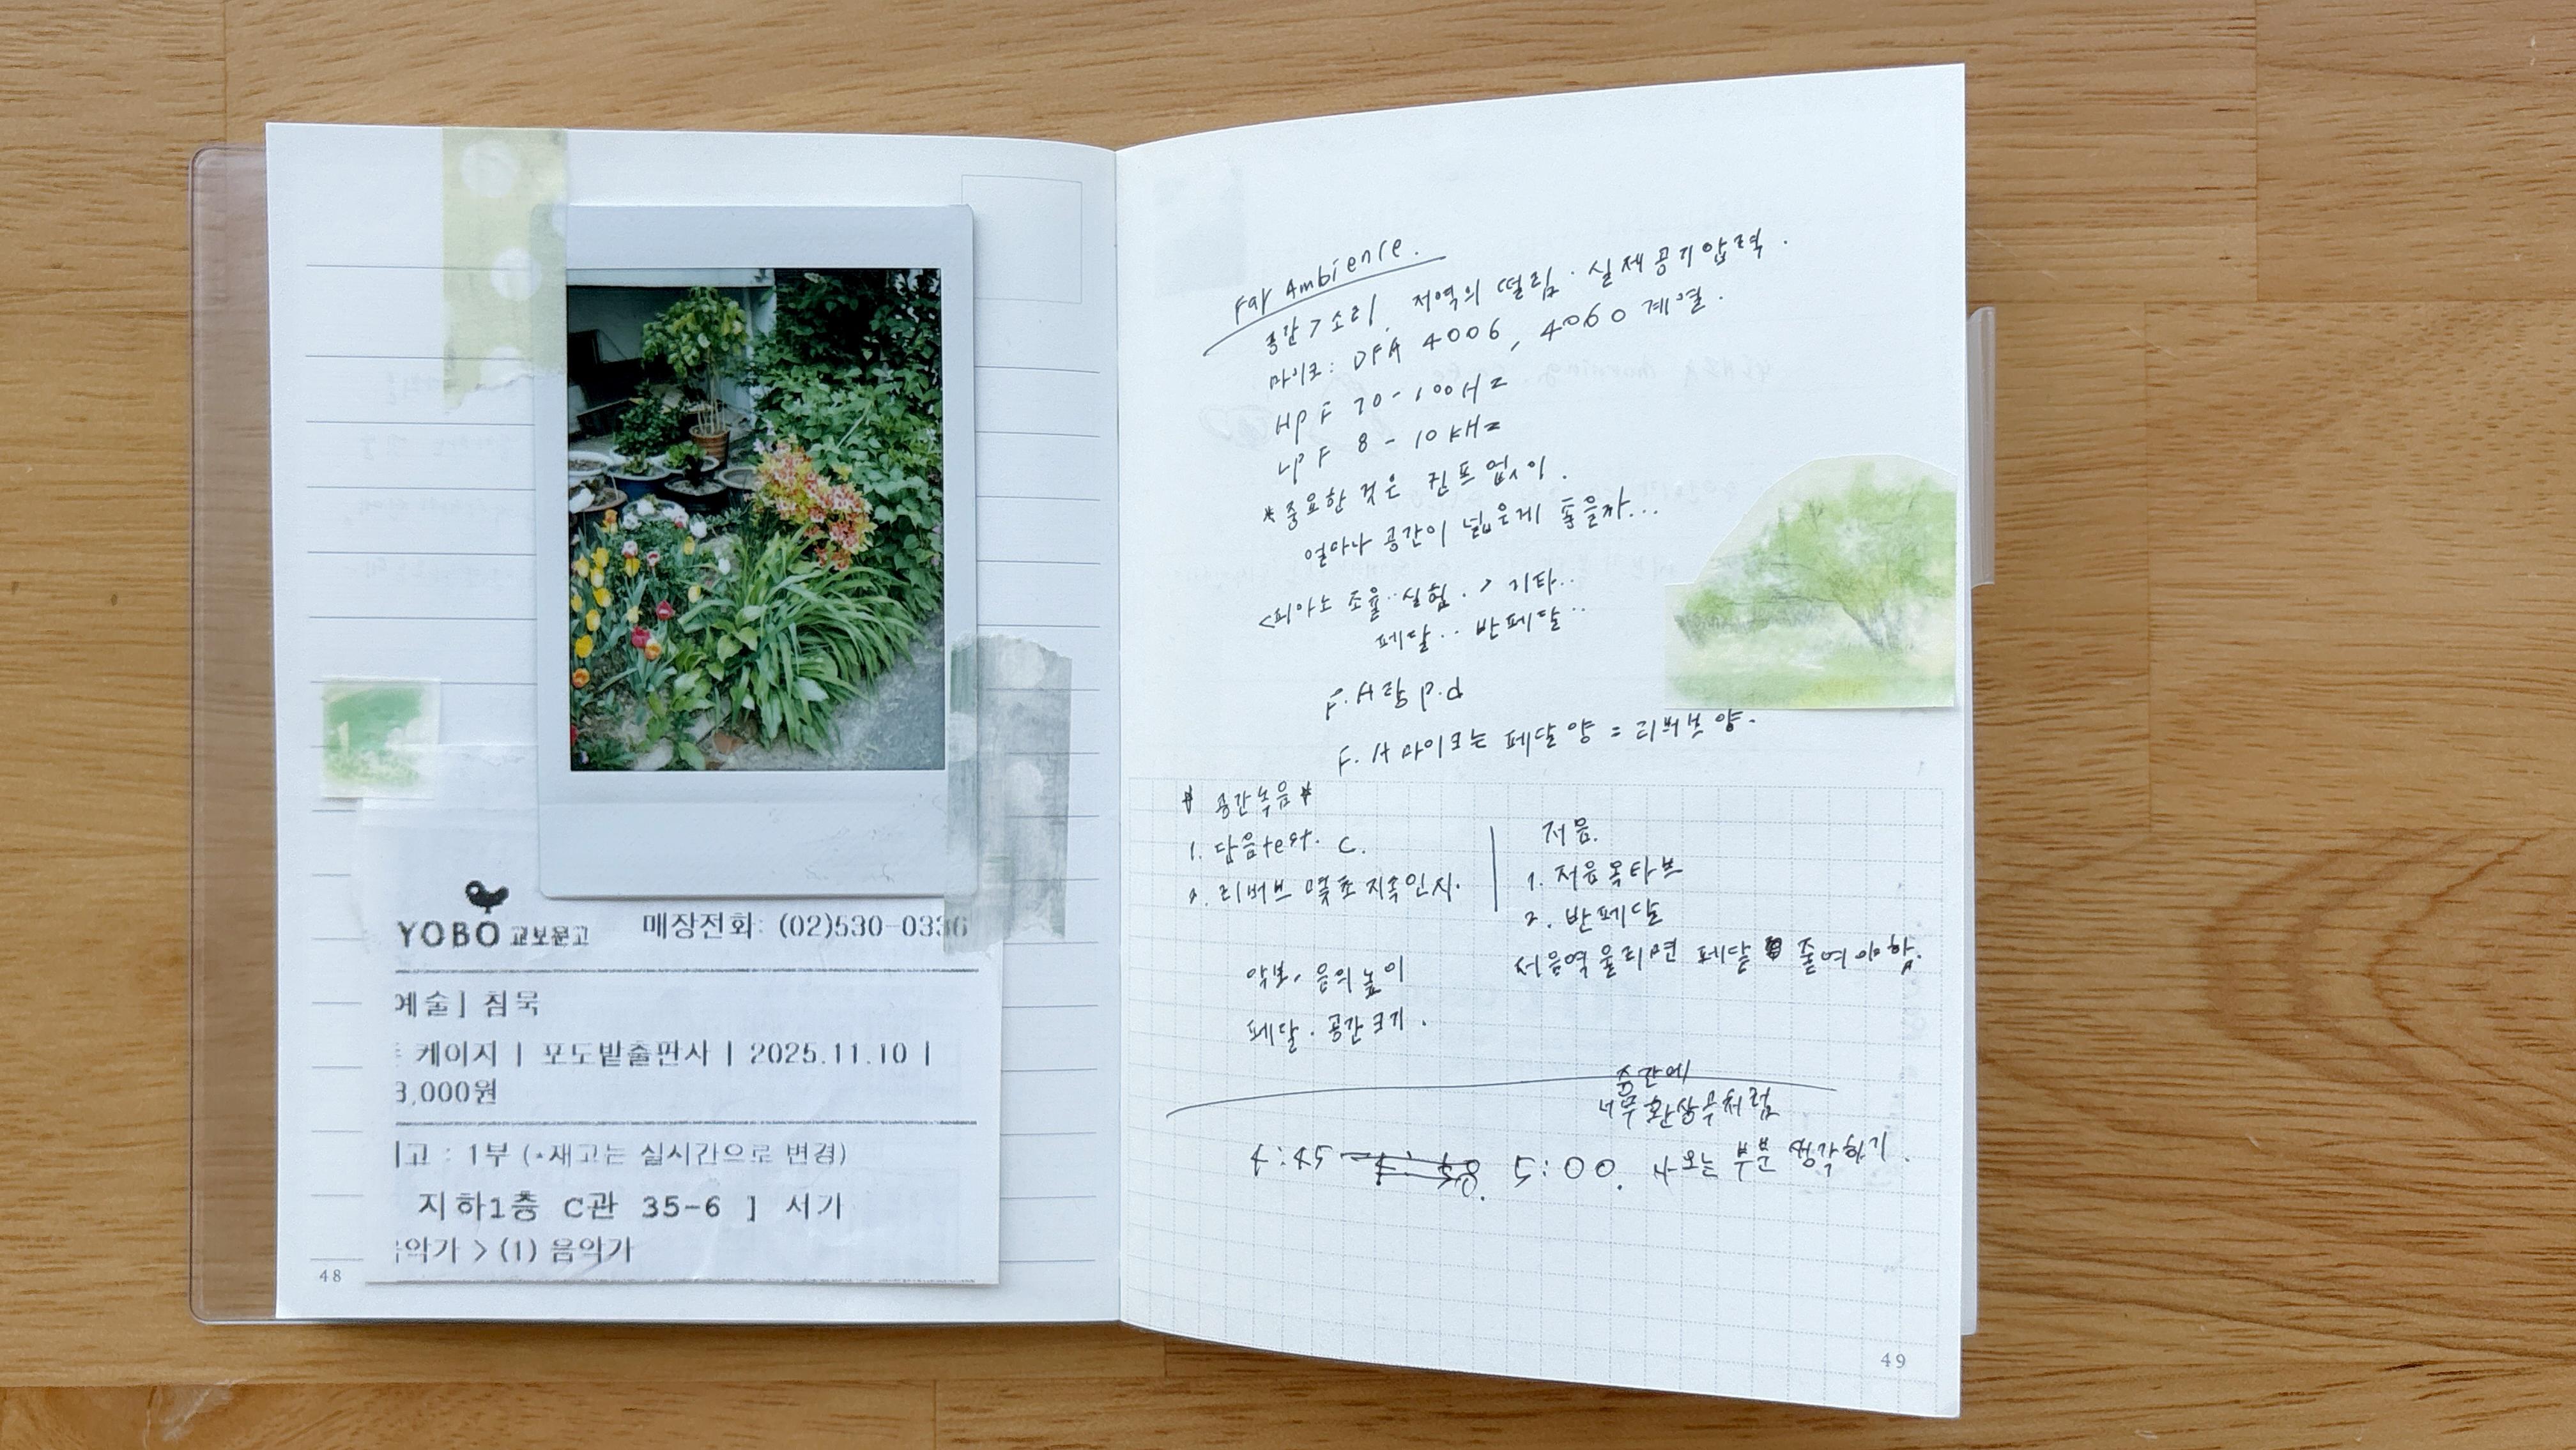 YOBO 교보문고 매장전화: (02)530-0336
예술] 침묵
케이지 | 포도밭출판사 | 2025.11.10 |
3,000원
고 : 1부 (*재고는 실시간으로 변경)
지하1층 C관 35-6 ] 서가
악가 > (1) 음악가
48
Far Ambience.
공간 > 소리, 저역의 떨림. 실제공기압력.
마이크: DPA 4006, 4060 계열.
HPF 70-100Hz
LPF 8-10kHz
*중요한 것은 점프 없이.
얼마나 공간이 넓은게 좋을까...
<피아노 조율..실험. > 기타..
페달.. 반페달..
F.H
F.H 마이크는 페달양 = 리버브양.
* 공간녹음 *
1. 단음test. C.
2. 리버브 몇초 지속인지.
저음.
1. 저음옥타브
2. 반페달
저음역울리면 페달 줄여야함.
악보, 음의높이
페달. 공간크기.
중간에
너무환상곡처럼
4:45 5:00. 나오는 부분 생각하기.
49